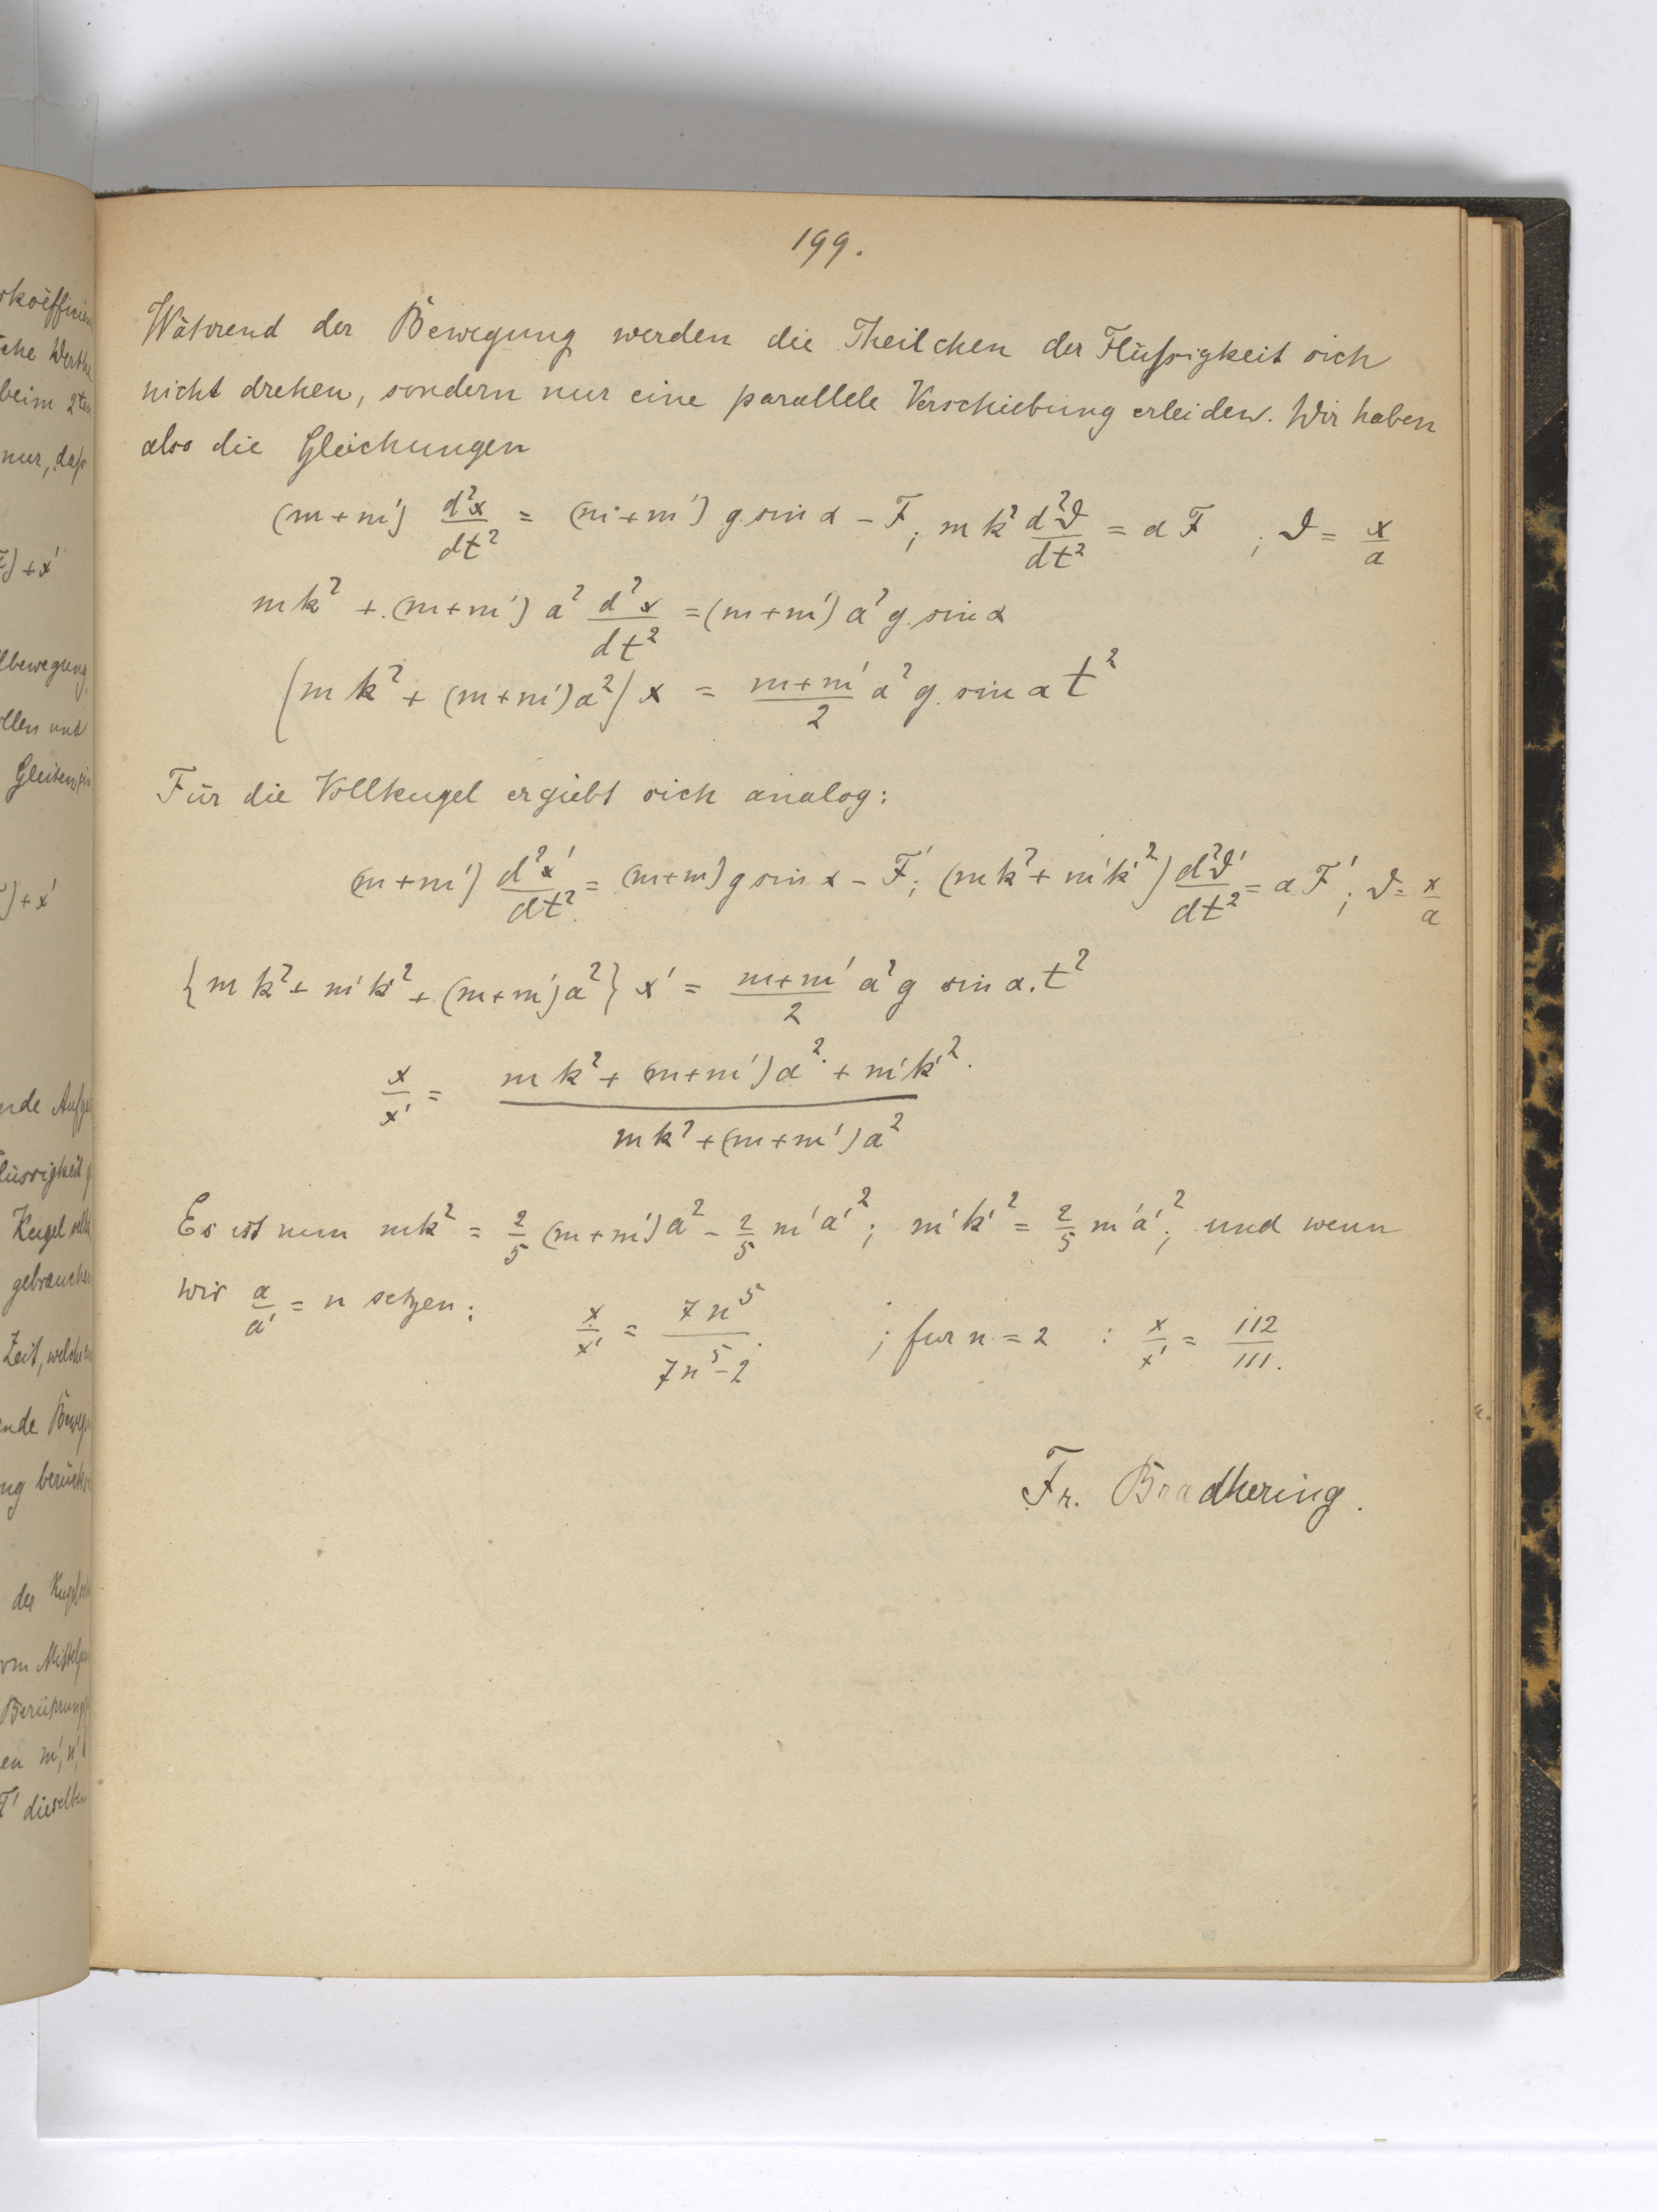 199.
Während der Bewegung werden die Theilchen der Flüſsigkeit sich
nicht drehen, sondern nur eine parallele Verschiebung erleiden. Wir haben
also die Gleichungen
(m+m') d²x/dt² = (m+m') g sin α - F; mk² d²ϑ/dt² = a F ; ϑ = x/a
mk² + (m+m') a² d²x/dt² = (m+m') a² g sin α
(mk² + (m+m')a²) x = (m+m')/2 a² g sin α t²
Für die Vollkugel ergiebt sich analog:
(m+m') d²x'/dt² = (m+m) g sin α - F'; (mk² + m'k'²) d²ϑ'/dt² = a F'; ϑ = x/a
{mk² + m'k'² + (m+m')a²} x' = (m+m')/2 a² g sin α. t²
x/x' = (mk² + (m+m')a² + m'k'²)/(mk² + (m+m')a²)
Es ist nun mk² = 2/5 (m+m')a² - 2/5 m'a'²; m'k'² = 2/5 m'a'²; und wenn
wir a/a' = n setzen: x/x' = 7n⁵/(7n⁵-2) ; fur n = 2 : x/x' = 112/111.
Fr. Bradhering.
beim 2ten
nur, daſs
+ x'
ollen und
+ x'
gebrauchen
Zeit, welche
der
en m', n',
F' dieselben